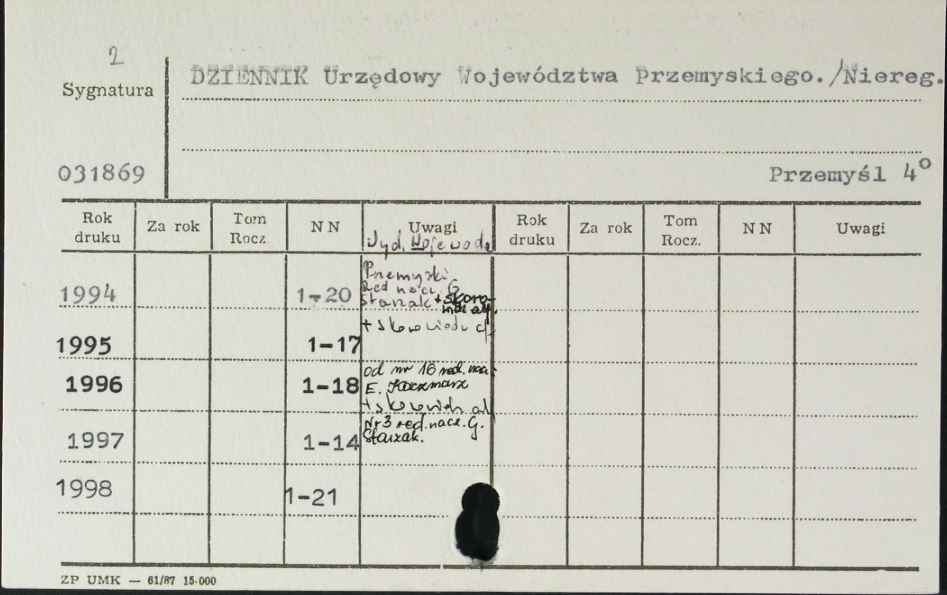 2
DZIENNIK Urzędowy Województwa Przemyskiego./Niereg.
Sygnatura
031869
Przemyśl 4º
Rok druku Za rok Tom Rocz. N N Uwagi Rok druku Za rok Tom Rocz. N N Uwagi
Wyd. Wojewoda
Przemyski
Red nacz. G
1994 1-20 Starzak + skoro-
+ skorowidz
1995 1-17
od nr 16 red. nacz.
1996 1-18 E. Kaczmarz
+ skorowidz al
Nr 3 red. nacz. G.
1997 1-14 Starzak.
1998 1-21
ZP UMK — 61/87 15.000